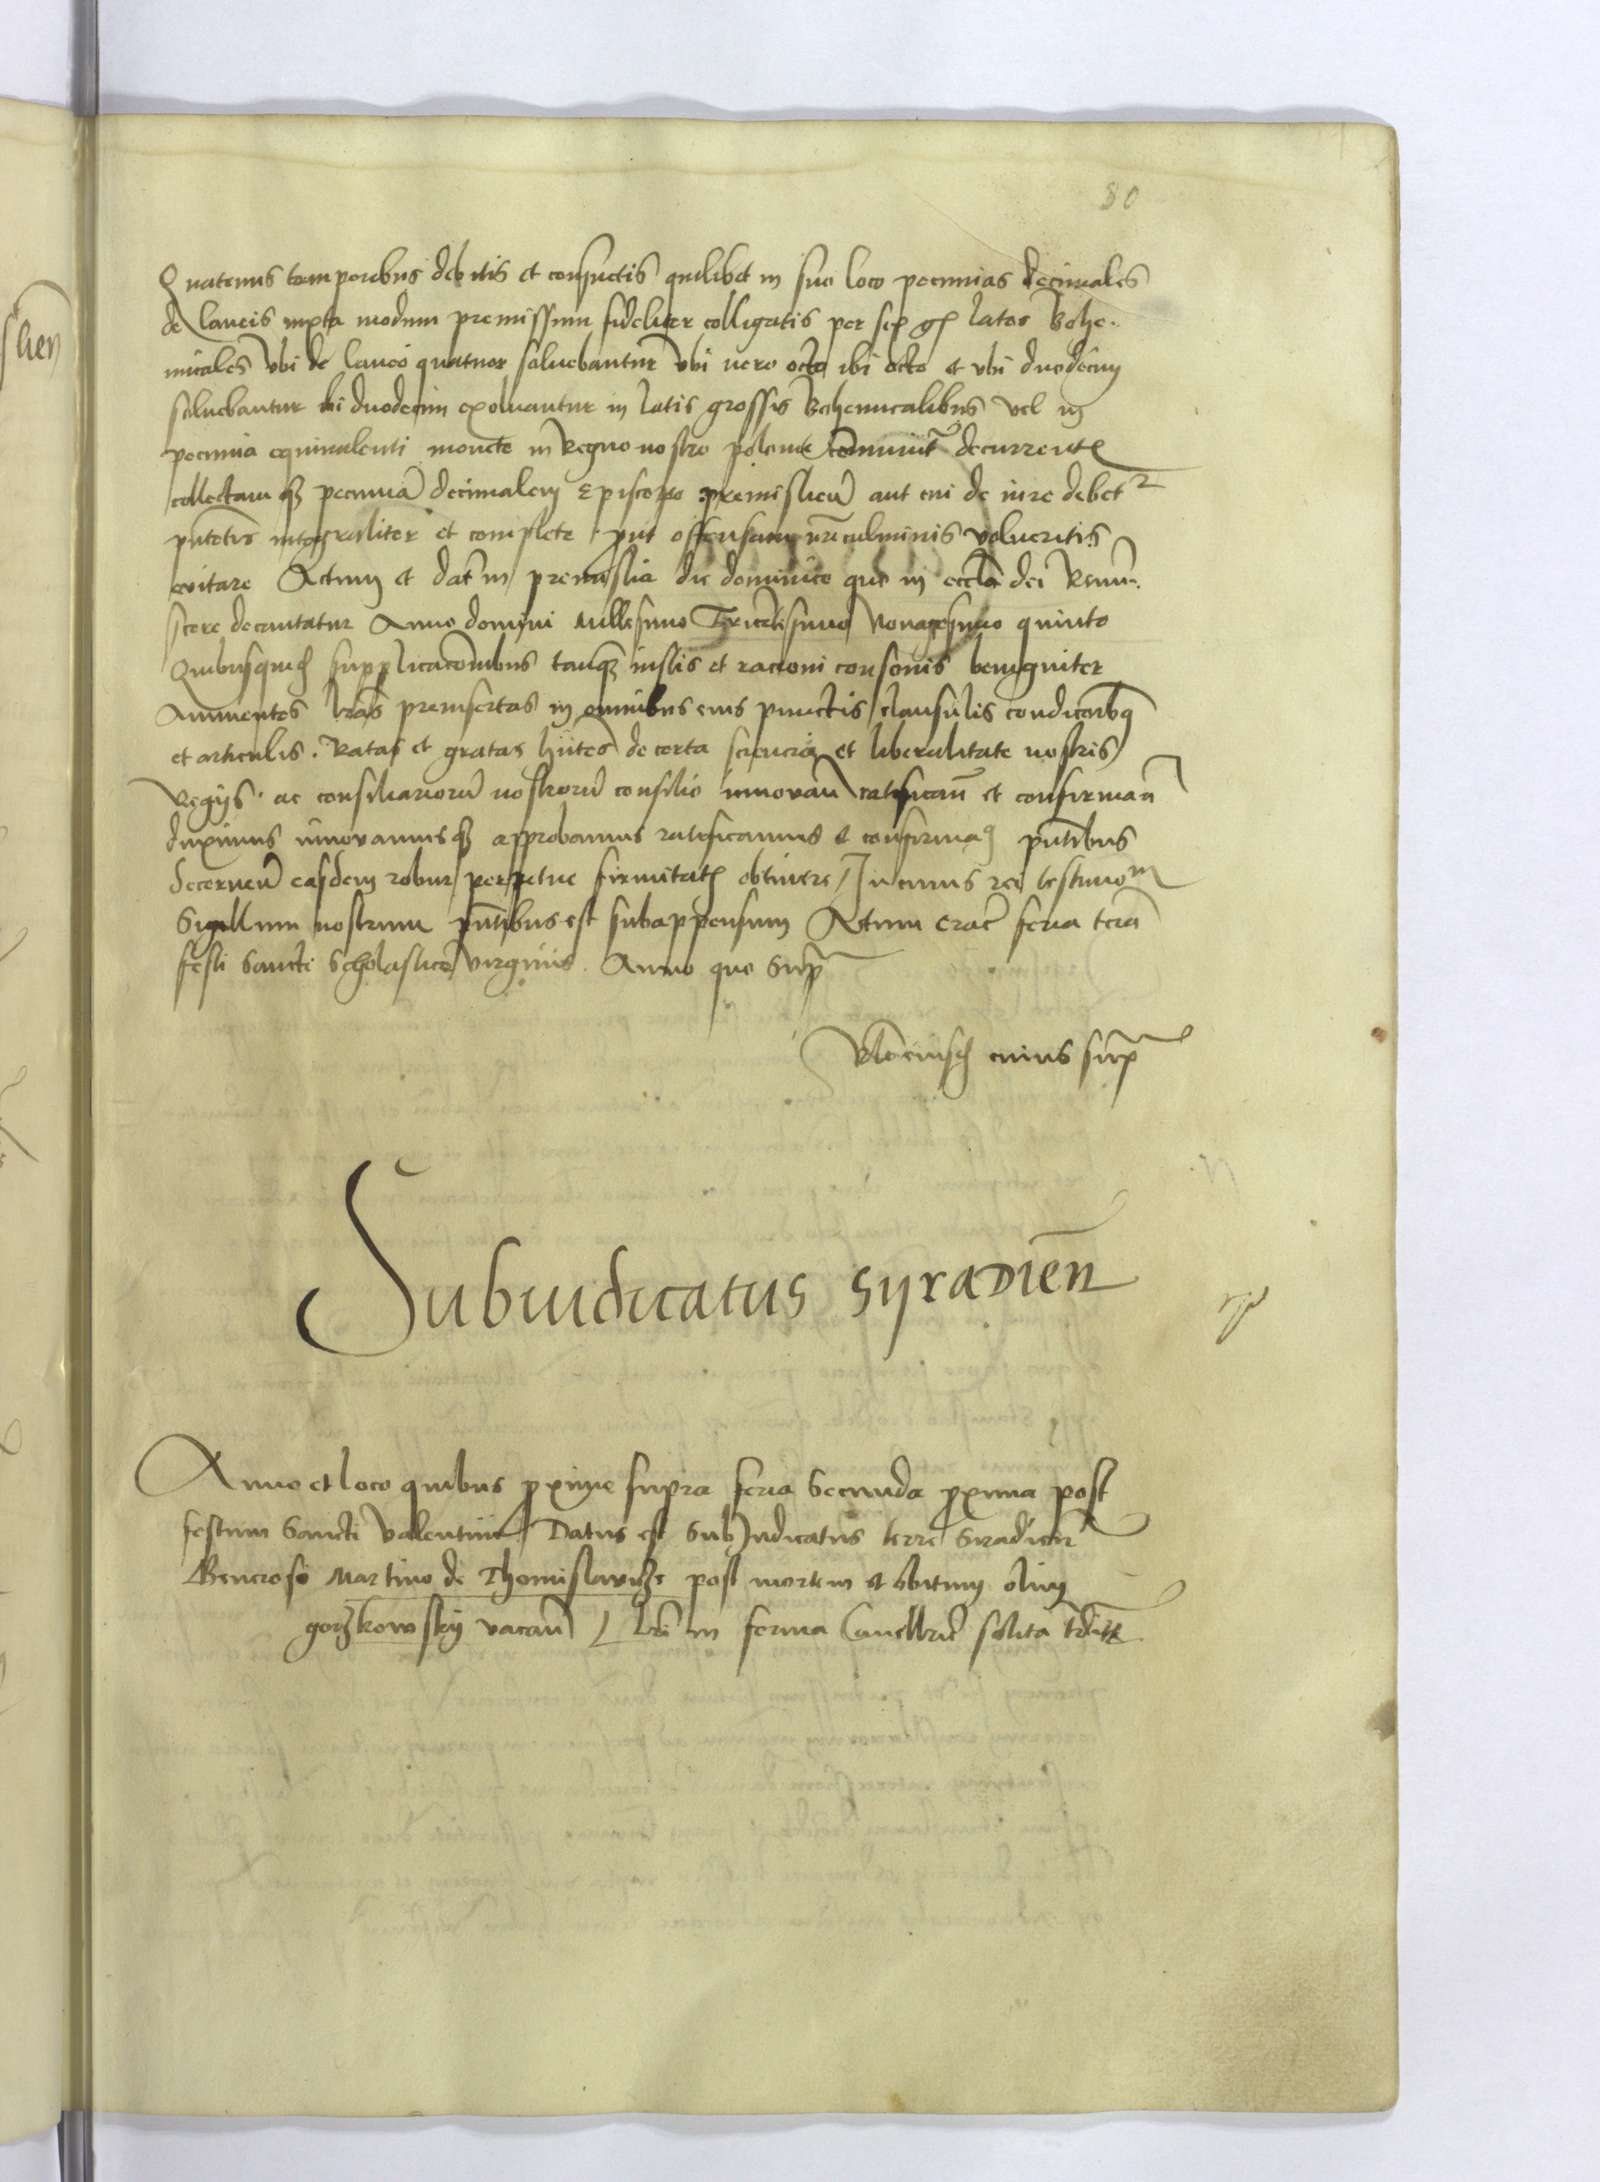 80
Quatenus temporibus debitis et consuetis quilibet in suo loco pecunias decimales
de laneis iuxta modum premissum fideliter colligatis per sex gs latos Bohe-
micales vbi de laneo quatuor soluebantur vbi vero octo ibi octo et vbi duodecim
soluebantur ibi duodecim exoluantur in latis grossis Bohemicalibus vel in
pecunia equiualenti monete in Regno nostro polonie comunit decurrente
collectam qz pecuniā decimalem Episcopo premislien aut cui de iure debet
pntetis integraliter et complete put offensam nri culminis volueritis
euitare Actum et dat in premislia die dominico quo in eccła dei Remi-
scere decantatur Anno domini Millesimo Tricentesimo Nonagesimo quinto
Quibusquid supplicacōnibus tanqz iustis et racioni consonis benigniter
Annuentes lras preinsertas in omnibus eius punctis clausulis condicōibq
et articulis . Ratas et gratas hntes de certa sciencia et liberalitate nostris
Regijs . ac consiliariorū nostrorū consilio innouan ratifican et confirman
duximus innouamus qz approbamus ratificamus et confirmaq pntibus
decernen easdem robur perpetue firmitatis obtinere / In cuius rei testimom
Sigillum nostrum pntibus est subappensum Actum crac feria tercia
festi Sancte Scholastice virginis . Anno quo Supra
Rlo eiusd cuius supra
slien
Subiudicatus syradien
Anno et loco quibus pxime supra feria Secunda pxima post
festum Sancti Valentini Datus est SubJudicatus terre Siradien
Generoso Martino de Thomislawicze post mortem et obitum olim
gorzkowskij vacan / Lre in forma Cancellarie solita tdite